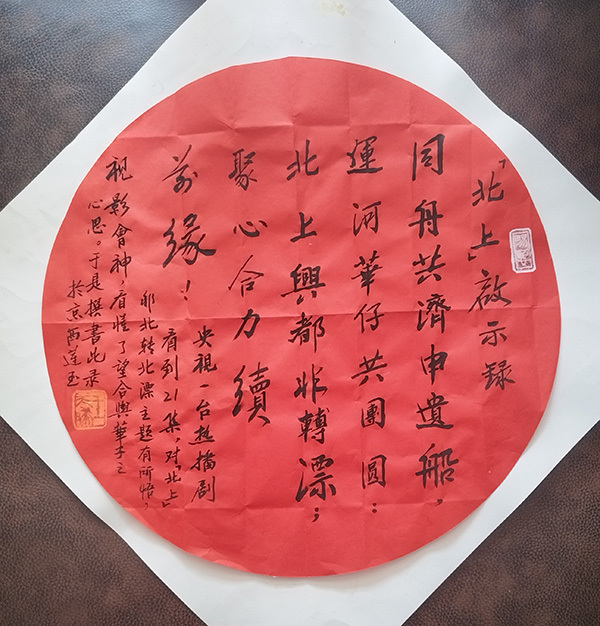 「北上」啟示録
同舟共濟申遺船，
運河華仔共團圓：
北上興都非轉漂；
聚心合力續
前缘！
央视一台热播剧
看到21集，对「北上」
非北转北漂主题有所悟，
视影會神，看懂了望合與華子之
心思。于是撰書此录
於京西莲玉